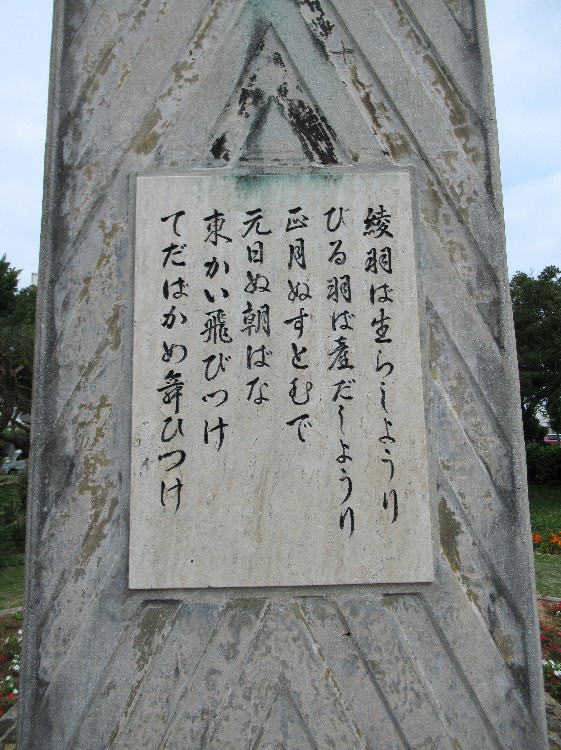 綾羽は生らしようり
びる羽ば産だしようり
正月ぬすとむで
元日ぬ朝ばな
東かい飛びつけ
てだばかめ舞ひつけ